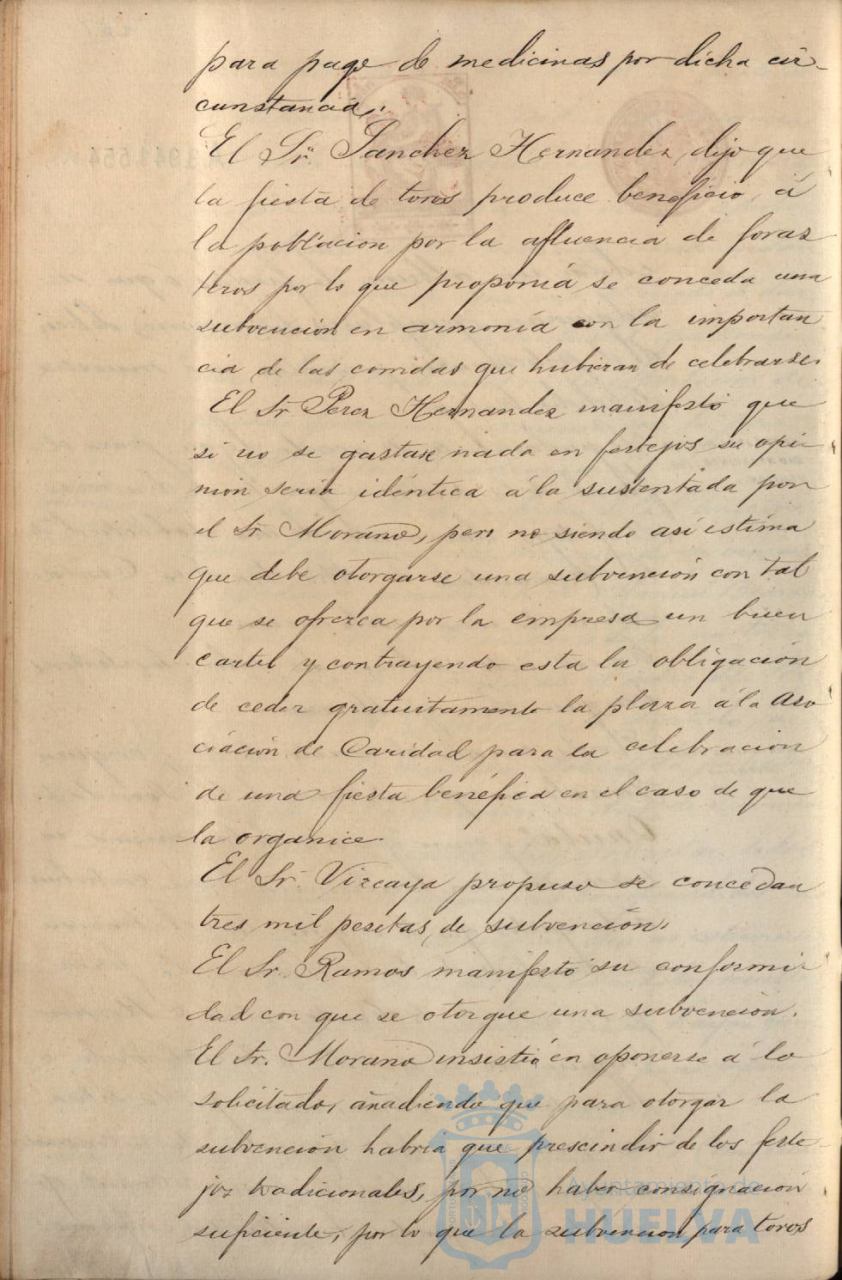 para pago de medicinas por dicha cir-
cunstancia.
El Sr. Sanchez Hernandez, dijo que
la fiesta de toros produce beneficio á
la poblacion por la afluencia de foras
teros por lo que proponía se conceda una
subvención en armonía con la importan
cia de las corridas que hubieran de celebrarse.
El Sr Perez Hernandez manifestó que
si no se gastase nada en festejos su opi
nión seria idéntica á la sustentada por
el Sr Morano, pero no siendo así estima
que debe otorgarse una subvención con tal
que se ofrezca por la empresa un buen
cartel y contrayendo esta la obligación
de ceder gratuitamente la plaza á la Aso
ciación de Caridad para la celebracion
de una fiesta benéfica en el caso de que
la organice.
El Sr. Vizcaya propuso se concedan
tres mil pesetas de subvención.
El Sr. Ramos manifestó su conformi
dad con que se otorgue una subvención.
El Sr. Morano insistió en oponerse á lo
solicitado, añadiendo que para otorgar la
subvención habría que prescindir de los feste-
jos tradicionales, por no haber consignación
suficiente, por lo que la subvencion para toros
Ayuntamiento de
HUELVA